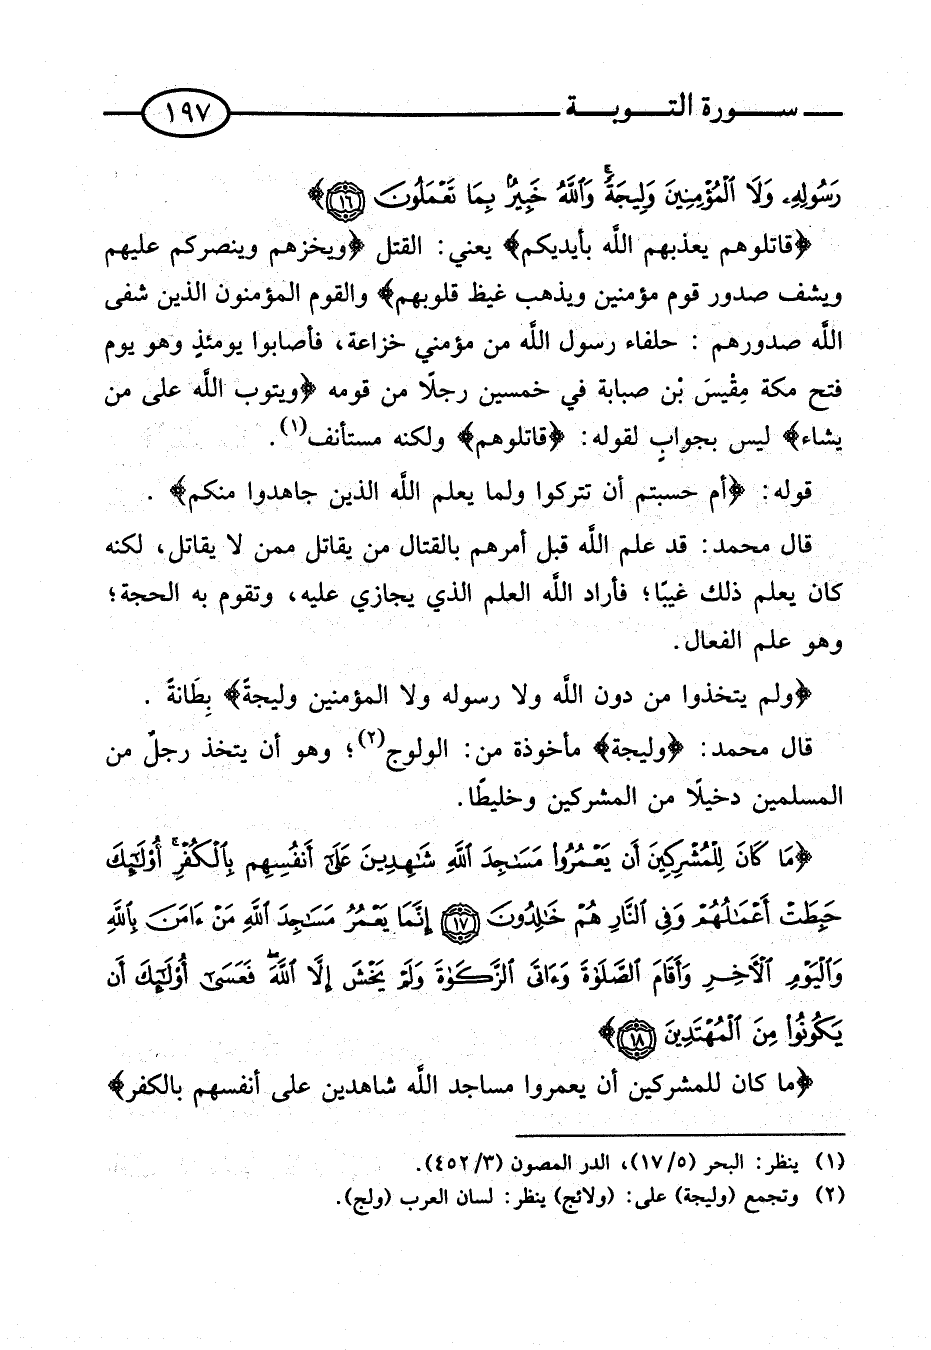 سـورة التـوبـة ١٩٧
رَسُولِهِۦ وَلَا ٱلْمُؤْمِنِينَ وَلِيجَةً ۚ وَٱللَّهُ خَبِيرٌۢ بِمَا تَعْمَلُونَ ١٦﴾
﴿قاتلوهم يعذبهم اللَّه بأيديكم﴾ يعني: القتل ﴿ويخزهم وينصركم عليهم
ويشف صدور قوم مؤمنين ويذهب غيظ قلوبهم﴾ والقوم المؤمنون الذين شفى
اللَّه صدورهم : حلفاء رسول اللَّه من مؤمني خزاعة، فأصابوا يومئذٍ وهو يوم
فتح مكة مِقْيسَ بْن صبابة في خمسين رجلًا من قومه ﴿ويتوب اللَّه على من
يشاء﴾ ليس بجوابٍ لقوله: ﴿قاتلوهم﴾ ولكنه مستأنف(١).
قوله: ﴿أم حسبتم أن تتركوا ولما يعلم اللَّه الذين جاهدوا منكم﴾ .
قال محمد: قد علم اللَّه قبل أمرهم بالقتال من يقاتل ممن لا يقاتل، لكنه
كان يعلم ذلك غيبًا؛ فأراد اللَّه العلم الذي يجازي عليه، وتقوم به الحجة؛
وهو علم الفعال.
﴿ولم يتخذوا من دون اللَّه ولا رسوله ولا المؤمنين وليجةً﴾ بِطَانةً .
قال محمد: ﴿وليجة﴾ مأخوذة من: الولوج(٢)؛ وهو أن يتخذ رجلٌ من
المسلمين دخيلًا من المشركين وخليطًا.
﴿مَا كَانَ لِلْمُشْرِكِينَ أَن يَعْمُرُوا۟ مَسَـٰجِدَ ٱللَّهِ شَـٰهِدِينَ عَلَىٰٓ أَنفُسِهِم بِٱلْكُفْرِ ۚ أُو۟لَـٰٓئِكَ
حَبِطَتْ أَعْمَـٰلُهُمْ وَفِى ٱلنَّارِ هُمْ خَـٰلِدُونَ ١٧ إِنَّمَا يَعْمُرُ مَسَـٰجِدَ ٱللَّهِ مَنْ ءَامَنَ بِٱللَّهِ
وَٱلْيَوْمِ ٱلْأَخِرِ وَأَقَامَ ٱلصَّلَوٰةَ وَءَاتَى ٱلزَّكَوٰةَ وَلَمْ يَخْشَ إِلَّا ٱللَّهَ ۖ فَعَسَىٰٓ أُو۟لَـٰٓئِكَ أَن
يَكُونُوا۟ مِنَ ٱلْمُهْتَدِينَ ١٨﴾
﴿ما كان للمشركين أن يعمروا مساجد اللَّه شاهدين على أنفسهم بالكفر﴾
(١) ينظر: البحر (١٧/٥)، الدر المصون (٤٥٢/٣).
(٢) وتجمع (وليجة) على: (ولائج) ينظر: لسان العرب (ولج).